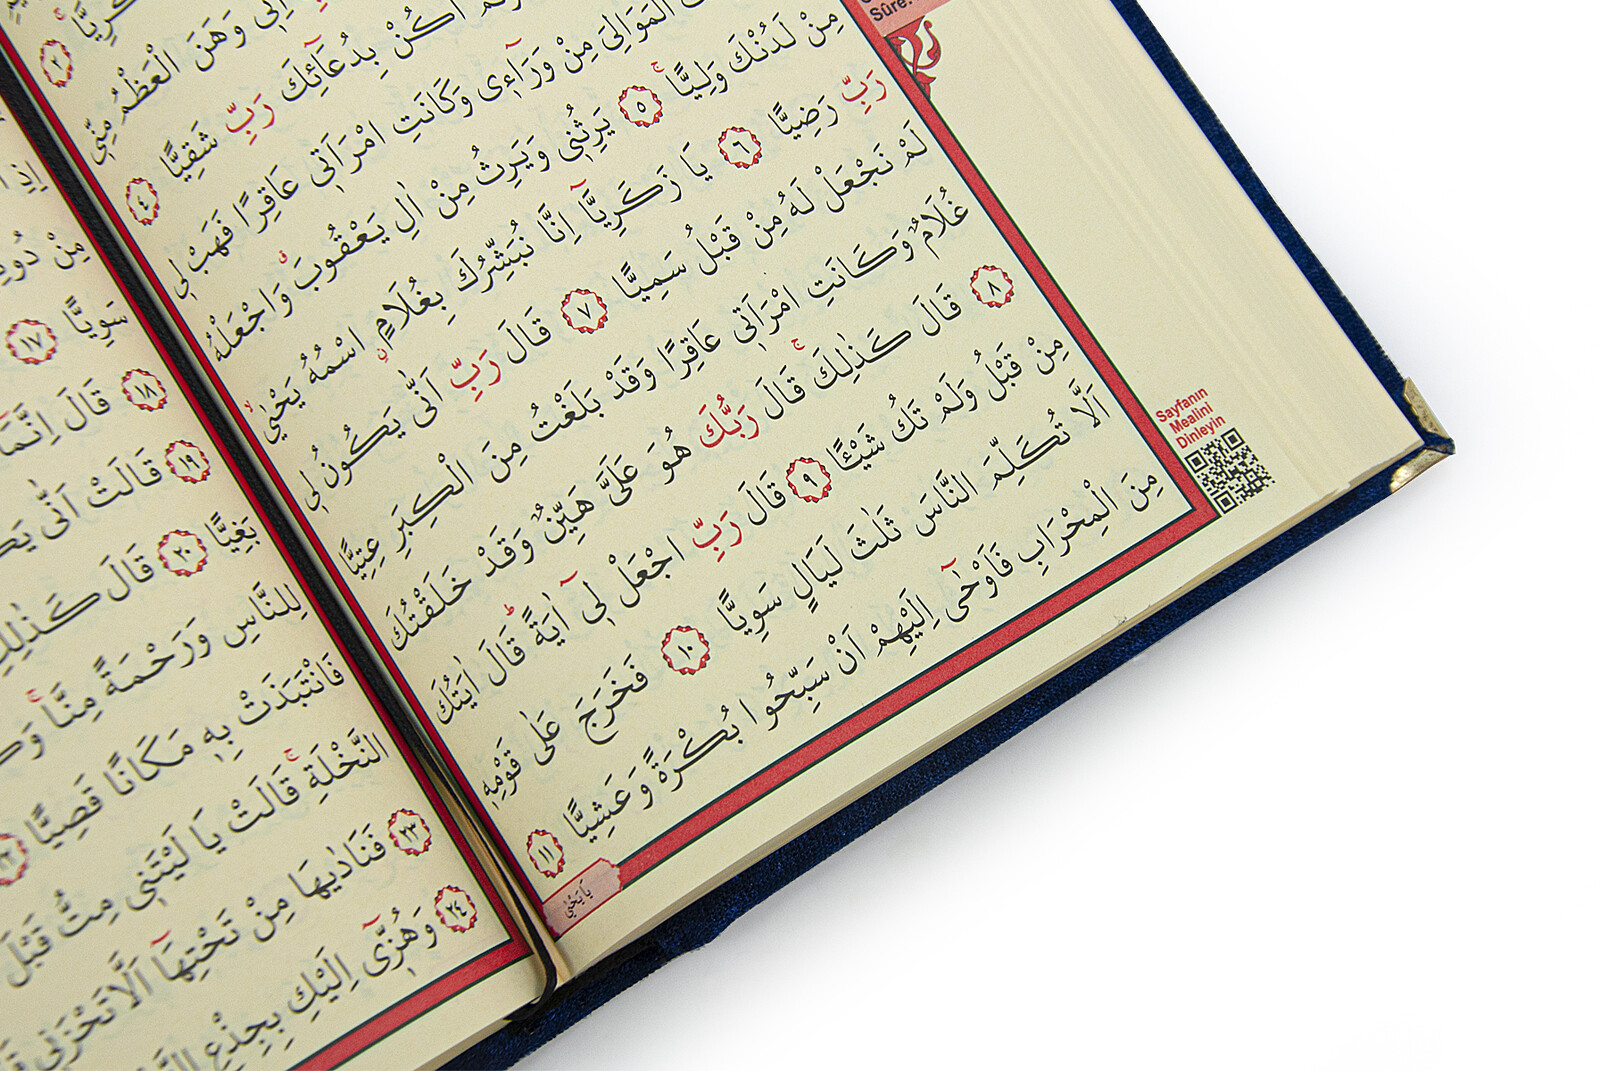 Sûre:
٢
اِنّ۪ي وَهَنَ الْعَظْمُ مِنّ۪ي
اَكُنْ بِدُعَٓائِكَ رَبِّ شَقِيًّا ٤
الْمَوَالِيَ مِنْ وَرَٓاء۪ي وَكَانَتِ امْرَاَت۪ي عَاقِرًا فَهَبْ ل۪ي
مِنْ لَدُنْكَ وَلِيًّاۚ ٥ يَرِثُن۪ي وَيَرِثُ مِنْ اٰلِ يَعْقُوبَۗ وَاجْعَلْهُ
رَبِّ رَضِيًّا ٦ يَا زَكَرِيَّٓا اِنَّا نُبَشِّرُكَ بِغُلَامٍ اسْمُهُ يَحْيٰىۙ
لَمْ نَجْعَلْ لَهُ مِنْ قَبْلُ سَمِيًّا ٧ قَالَ رَبِّ اَنّٰى يَكُونُ ل۪ي
غُلَامٌ وَكَانَتِ امْرَاَت۪ي عَاقِرًا وَقَدْ بَلَغْتُ مِنَ الْكِبَرِ عِتِيًّا
٨ قَالَ كَذٰلِكَۚ قَالَ رَبُّكَ هُوَ عَلَيَّ هَيِّنٌ وَقَدْ خَلَقْتُكَ
مِنْ قَبْلُ وَلَمْ تَكُ شَيْـًٔا ٩ قَالَ رَبِّ اجْعَلْ ل۪ٓي اٰيَةًۜ قَالَ اٰيَتُكَ
اَلَّا تُكَلِّمَ النَّاسَ ثَلٰثَ لَيَالٍ سَوِيًّا ١٠ فَخَرَجَ عَلٰى قَوْمِه۪
مِنَ الْمِحْرَابِ فَاَوْحٰٓى اِلَيْهِمْ اَنْ سَبِّحُوا بُكْرَةً وَعَشِيًّا ١١
يَا يَحْيٰى
Sayfanın
Mealini
Dinleyin
اِذِ
مِنْ
سَوِيًّا ١٧
١٨ قَالَ اِنَّمَا
١٩ قَالَتْ اَنّٰى
بَغِيًّا ٢٠ قَالَ كَذٰلِكِ
لِلنَّاسِ وَرَحْمَةً مِنَّاۚ
فَانْتَبَذَتْ بِه۪ مَكَانًا قَصِيًّا ٢٢
النَّخْلَةِۚ قَالَتْ يَا لَيْتَن۪ي مِتُّ قَبْلَ
٢٣ فَنَادٰيهَا مِنْ تَحْتِهَٓا اَلَّا تَحْزَن۪ي
٢٤ وَهُزّ۪ٓي اِلَيْكِ بِجِذْعِ